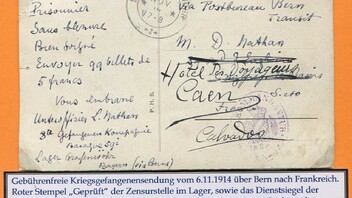 Prisonnier
Sans blessure
Bien soigné
Envoyer 99 billets de
5 francs
Vous embrasse
Unteroffizier L. Nathan
3te Gefangenen Kompagnie
Lager Grafenwöhr
Bayern (via Bern)
NOV
V7-8
P.H.B.
Via Postbureau Bern
Transit
M. D. Nathan
Hotel Des Voyageurs
Caen
Calvados
Gebührenfreie Kriegsgefangenensendung vom 6.11.1914 über Bern nach Frankreich.
Roter Stempel „Geprüft“ der Zensurstelle im Lager, sowie das Dienstsiegel der